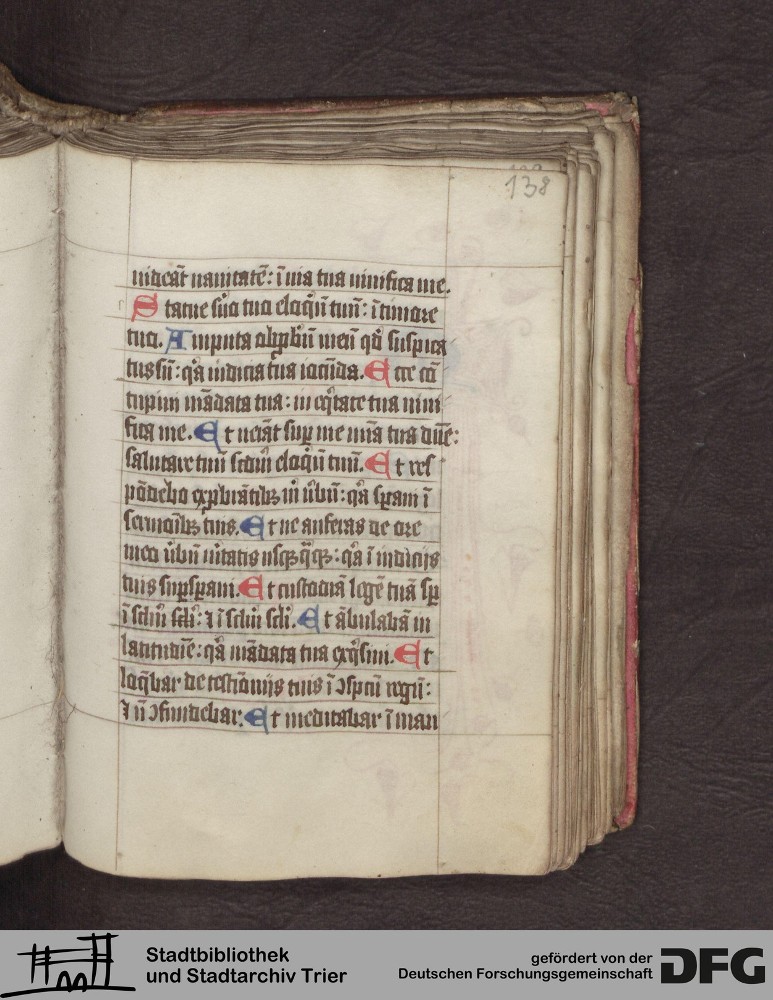 138
videāt vanitatē: ī via tua vivifica me.
Statue s̉uo tuo eloqiū tuū: ī timore
tuo. Amputa obp̱briū meū qđ suspica
tus sū: qa iudicia tua iocūda. Ecce cō
cupivi mādata tua: in eqitate tua vivi
fica me. Et veniāt suꝑ me mīa tua dn̄e:
salutare tuū scdm̄ eloqiū tuū. Et res
pōdebo exꝓbrātibꝫ m̉ v̉bū: qa sꝑavi ī
sermoībꝫ tuis. Et ne auferas de ore
meo v̉bū v̉itatis usqꝫ qāqꝫ: qa ī iudicijs
tuis suꝑsꝑavi. Et custodiā legē tuā sꝑ
ī sclm̄ scli: ⁊ ī sclm̄ scli. Et ābulabā in
latitudīe: qa mādata tua exqisivi. Et
loqēbar de testīoniis tuis ī ↄspcū regū:
⁊ n̄ ↄfundebar. Et meditabar ī man
Stadtbibliothek
und Stadtarchiv Trier
gefördert von der
Deutschen Forschungsgemeinschaft
DFG